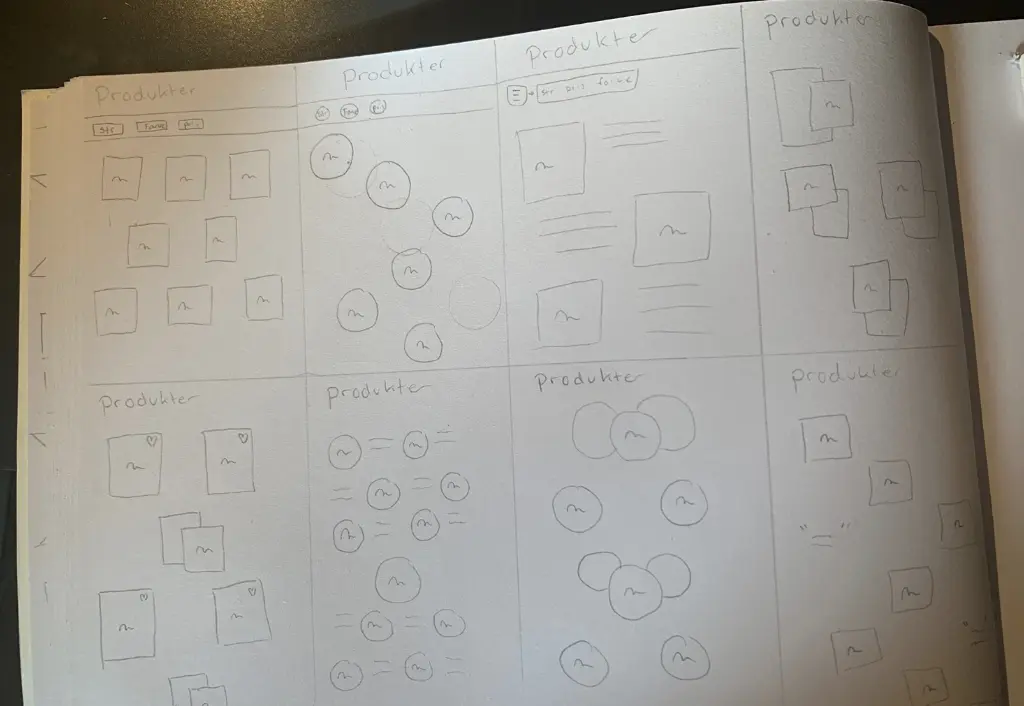 Produkter
Str Farve pris
Produkter
Str Farve pris
Produkter
Str pris farve
Produkter
Produkter
Produkter
Produkter
Produkter